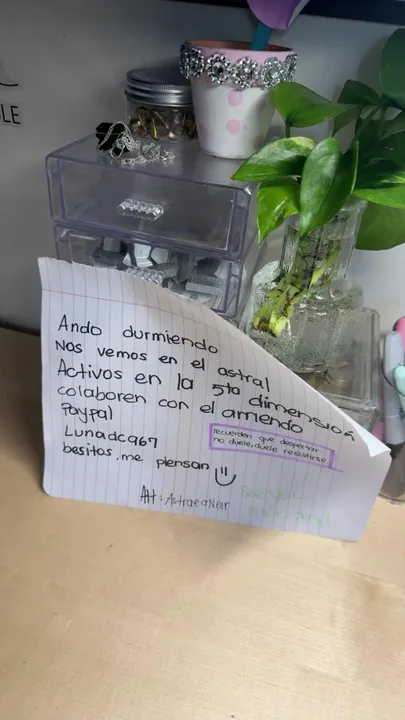 LE
Ando durmiendo
Nos vemos en el astral
Activos en la 5to dimensión
colaboren con el arriendo
Paypal
Lunadca67
besitos, me piensan
recuerden que despertar
no duele, duele resistirse
Att: AstraeaNar